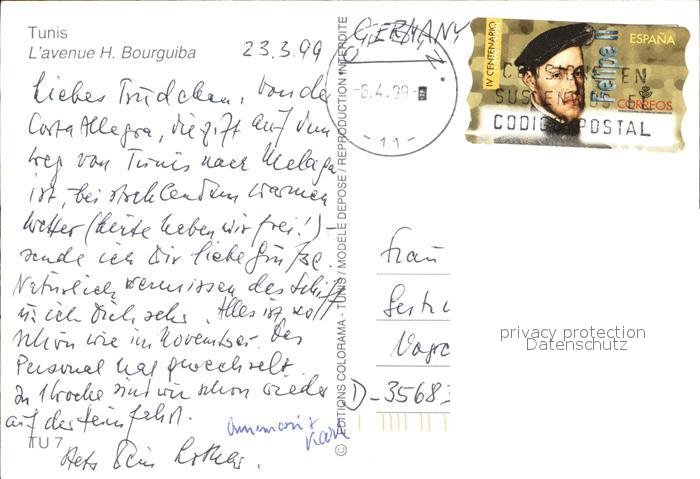 Tunis
L'avenue H. Bourguiba
23.3.99
GERMANY
Liebes Trudchen, von der
Costa Allegra, die jetzt auf dem
Weg von Tunis nach Malaga
ist, bei strahlendem warmen
Wetter (heute haben wir frei!) -
sende ich Dir liebe Grüße.
Natürlich vermissen das Schiff
u. ich Dich sehr. Alles ist so
schön wie im November. Das
Personal hat gewechselt.
In 1 Woche sind wir schon wieder
auf der Heimfahrt.
TU 7
Stets Dein Lothar.
Annemarie +
Karl
© EDITIONS COLORAMA - TUNIS / MODELE DEPOSE / REPRODUCTION INTERDITE
-6.4.99-
-11-
IV CENTENARIO
Felipe II
ESPAÑA
CORREOS
CONSIGNE EN
SUS ENVIOS EL
CODIGO POSTAL
Frau
Gertru
D-35683
privacy protection
Datenschutz